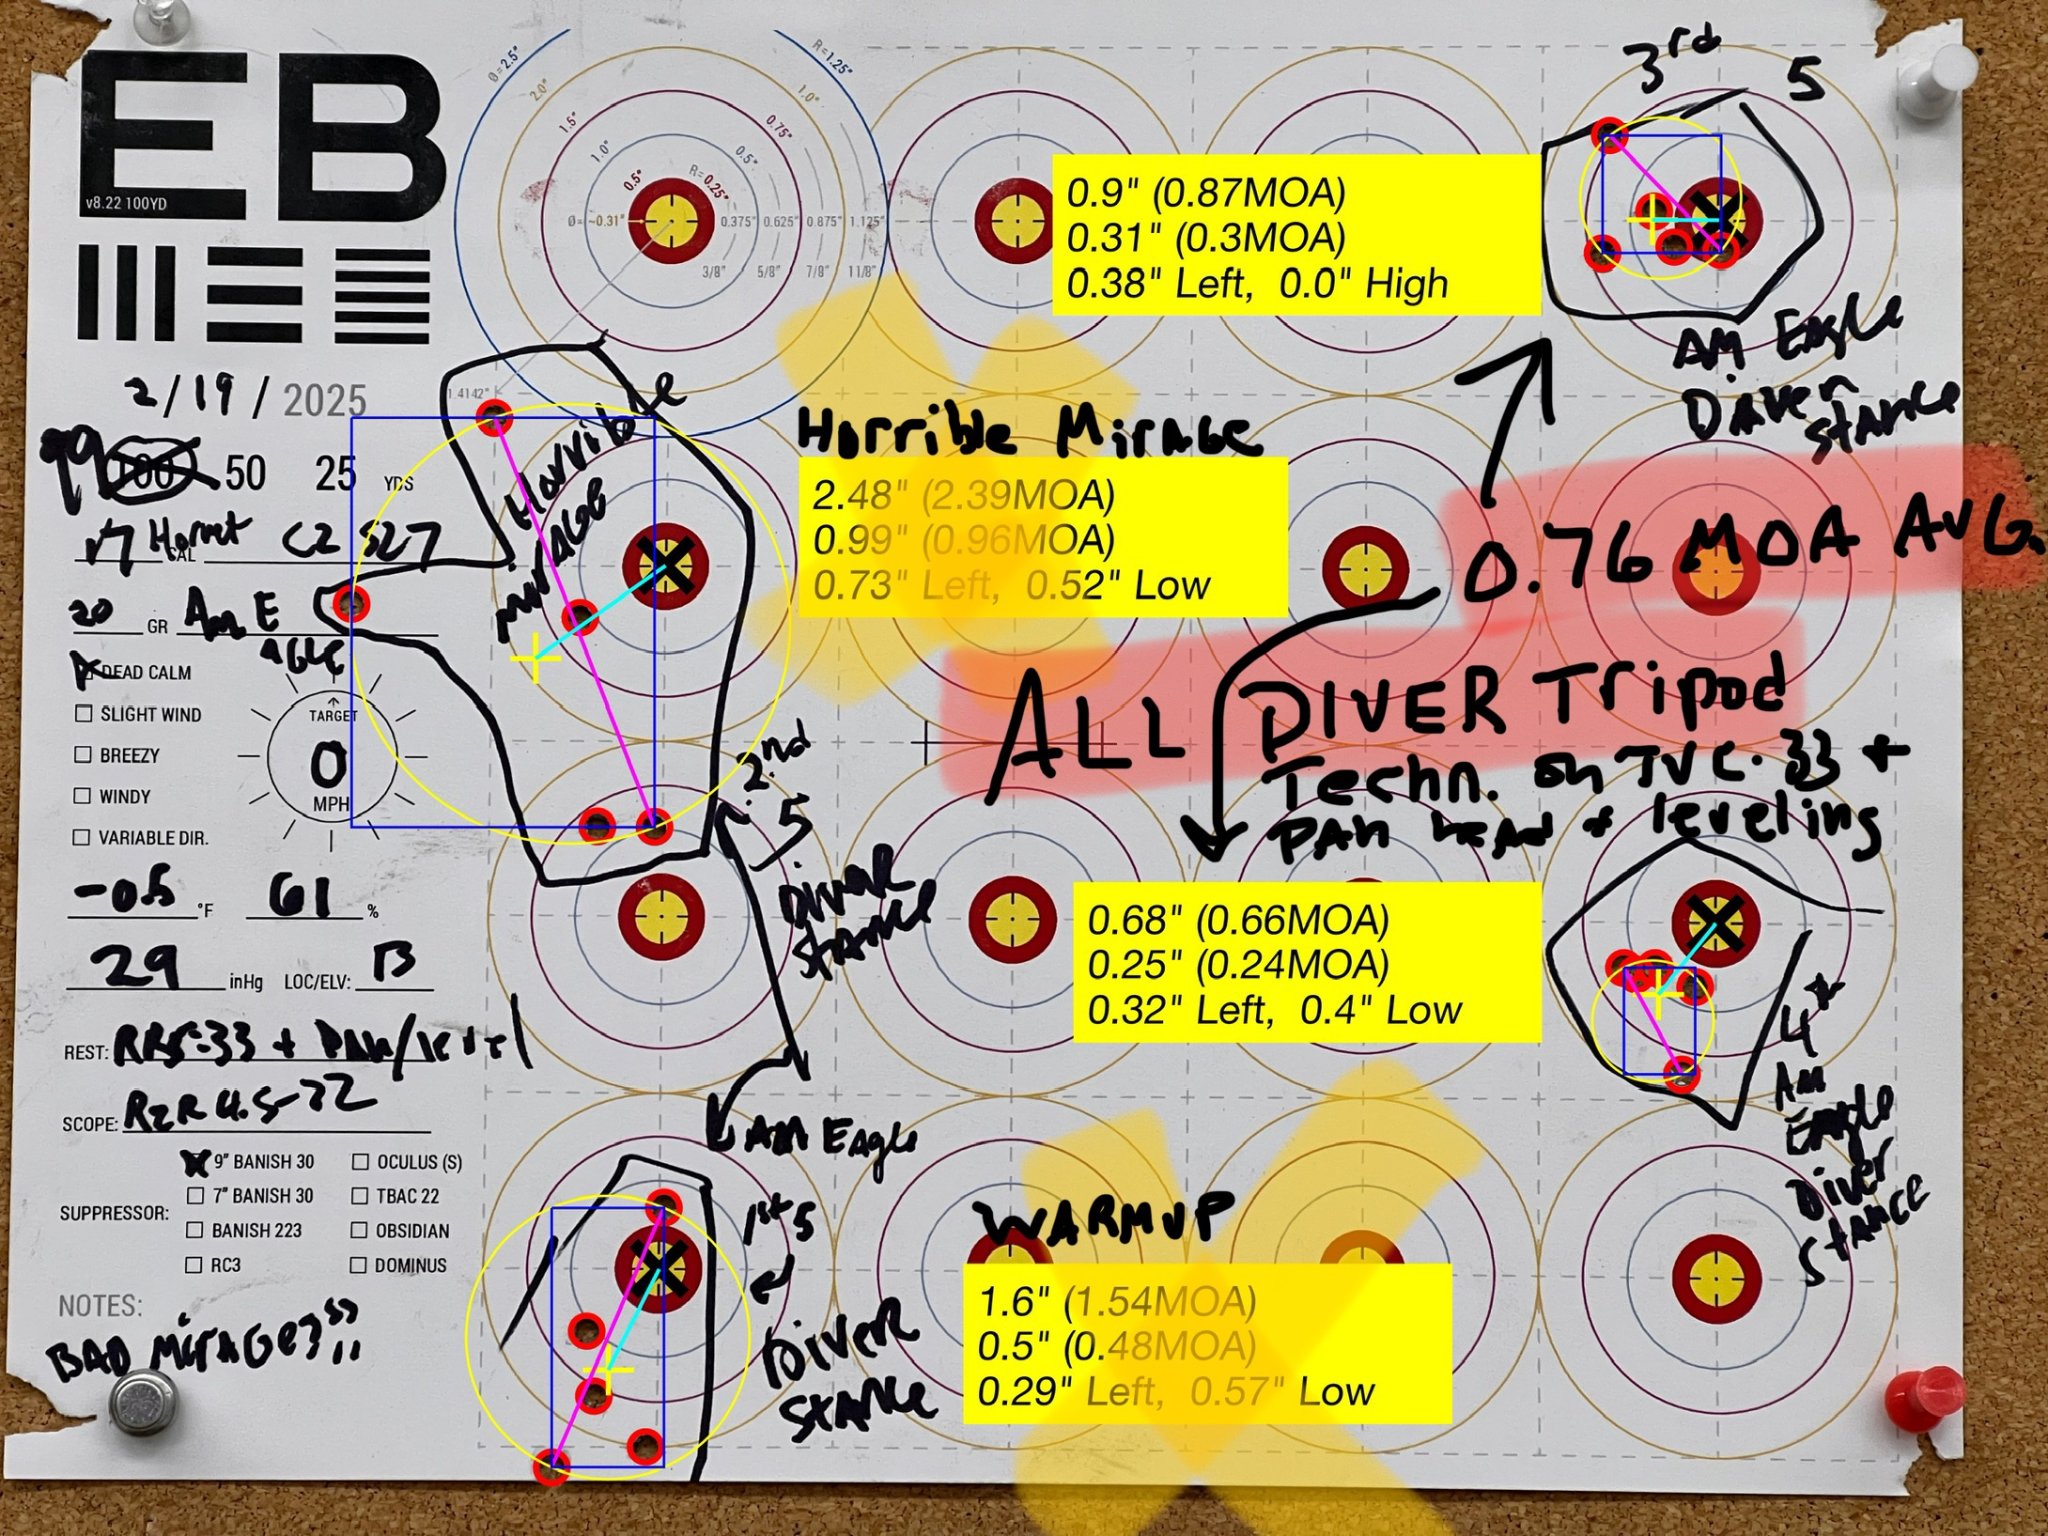 EB
v8.22 100YD
2/19/2025
99 100 50 25 YDS
17 Hornet CZ 527
CAL
20 GR Am Eagle
DEAD CALM
SLIGHT WIND
BREEZY
WINDY
VARIABLE DIR.
TARGET
0
MPH
-0.5 °F 61 %
29 inHg LOC/ELV: B
REST: RRS-33 + PAN/level
SCOPE: RZR 4.5-22
SUPPRESSOR:
9" BANISH 30 OCULUS (S)
7" BANISH 30 TBAC 22
BANISH 223 OBSIDIAN
RC3 DOMINUS
NOTES:
BAD MIRAGE
Ø=2.5" R=1.25"
2.0" 1.0"
1.5" 0.75"
1.0" 0.5"
0.5" R=0.25"
Ø=~0.31" 0.375" 0.625" 0.875" 1.125"
3/8" 5/8" 7/8" 11/8"
1.4142"
Horrible
MIRAGE
2nd
5
Diver
Stance
AM Eagle
1st 5
Diver
Stance
3rd 5
0.9" (0.87MOA)
0.31" (0.3MOA)
0.38" Left, 0.0" High
AM Eagle
Diver
Stance
Horrible Mirage
2.48" (2.39MOA)
0.99" (0.96MOA)
0.73" Left, 0.52" Low
0.76 MOA AVG.
ALL DIVER Tripod
Techn. on TVC-33 +
PAN head + leveling
0.68" (0.66MOA)
0.25" (0.24MOA)
0.32" Left, 0.4" Low
4th
AM
Eagle
Diver
Stance
WARMUP
1.6" (1.54MOA)
0.5" (0.48MOA)
0.29" Left, 0.57" Low